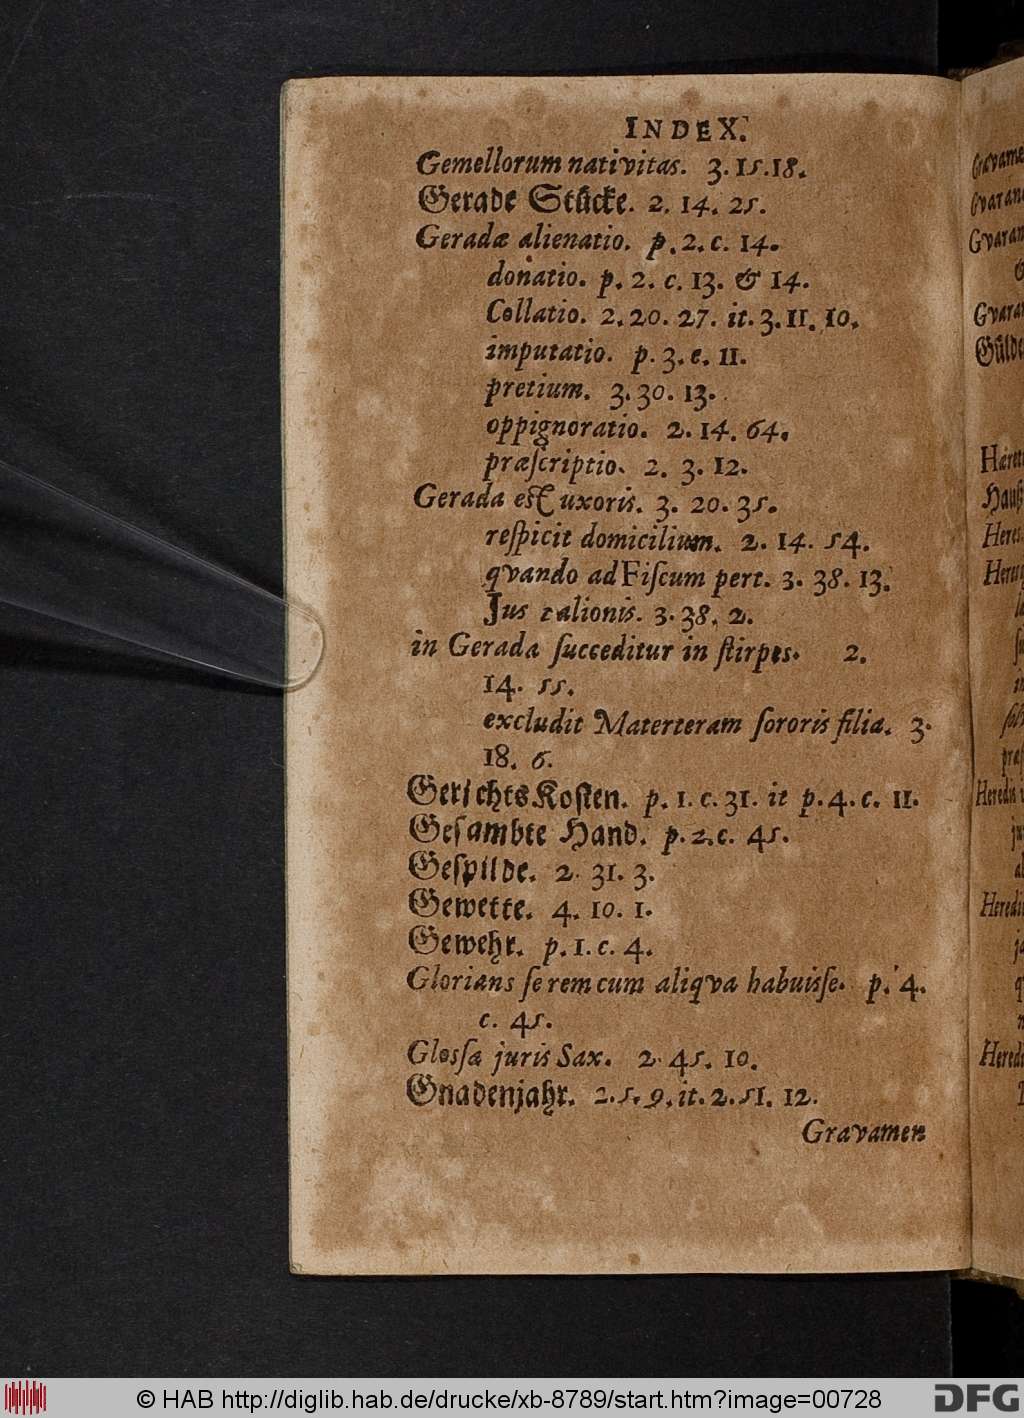 INDEX.
Gemellorum nativitas. 3. 15. 18.
Gerade Stücke. 2. 14. 25.
Geradæ alienatio. p. 2. c. 14.
donatio. p. 2. c. 13. & 14.
Collatio. 2. 20. 27. it. 3. 11. 10.
imputatio. p. 3. c. 11.
pretium. 3. 30. 13.
oppignoratio. 2. 14. 64.
præſcriptio. 2. 3. 12.
Gerada est uxoris. 3. 20. 35.
reſpicit domicilium. 2. 14. 54.
qvando ad Fiſcum pert. 3. 38. 13.
Jus talionis. 3. 38. 2.
in Gerada ſucceditur in ſtirpes. 2.
14. 55.
excludit Materteram ſororis filia. 3.
18. 6.
Gerichts Koſten. p. 1. c. 31. it p. 4. c. 11.
Geſambte Hand. p. 2. c. 45.
Geſpilde. 2. 31. 3.
Gewette. 4. 10. 1.
Gewehr. p. 1. c. 4.
Glorians ſe rem cum aliqva habuiſſe. p. 4.
c. 45.
Gloſſa juris Sax. 2. 45. 10.
Gnadenjahr. 2. 5. 9. it. 2. 51. 12.
Gravamen
© HAB http://diglib.hab.de/drucke/xb-8789/start.htm?image=00728
DFG